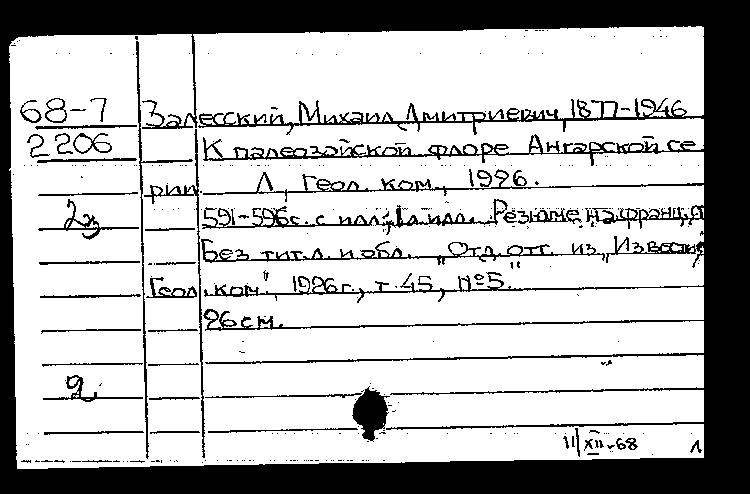 68-7 Залесский, Михаил Дмитриевич, 1877-1946
2206 К палеозойской флоре Ангарской се
рии Л, Геол. ком., 1926.
2э 591-596с. с илл; 1л илл. Резюме на франц. я
Без тит.л. и обл. „Отд. отт. из „Известий
Геол. ком", 1926г., т.45, №5."
26см.
2
11/XII-68